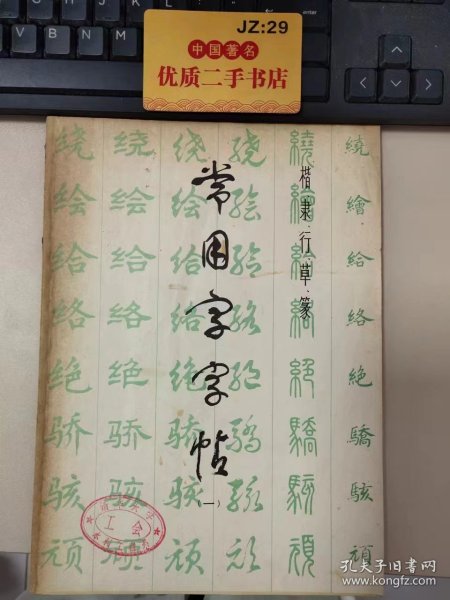 JZ:29
中国著名
优质二手书店
常用字字帖
(一)
楷·隶·行·草·篆
绕 绕 绕 绕 繞 繞
绘 绘 绘 绘 繪 繪
给 给 给 给 給 給
络 络 络 络 絡 絡
绝 绝 绝 绝 絕 絶
骄 骄 骄 骄 驕 驕
骇 骇 骇 骇 駭 駭
顽 顽 顽 顽 頑 頑
工会
孔夫子旧书网
www.kongfz.com